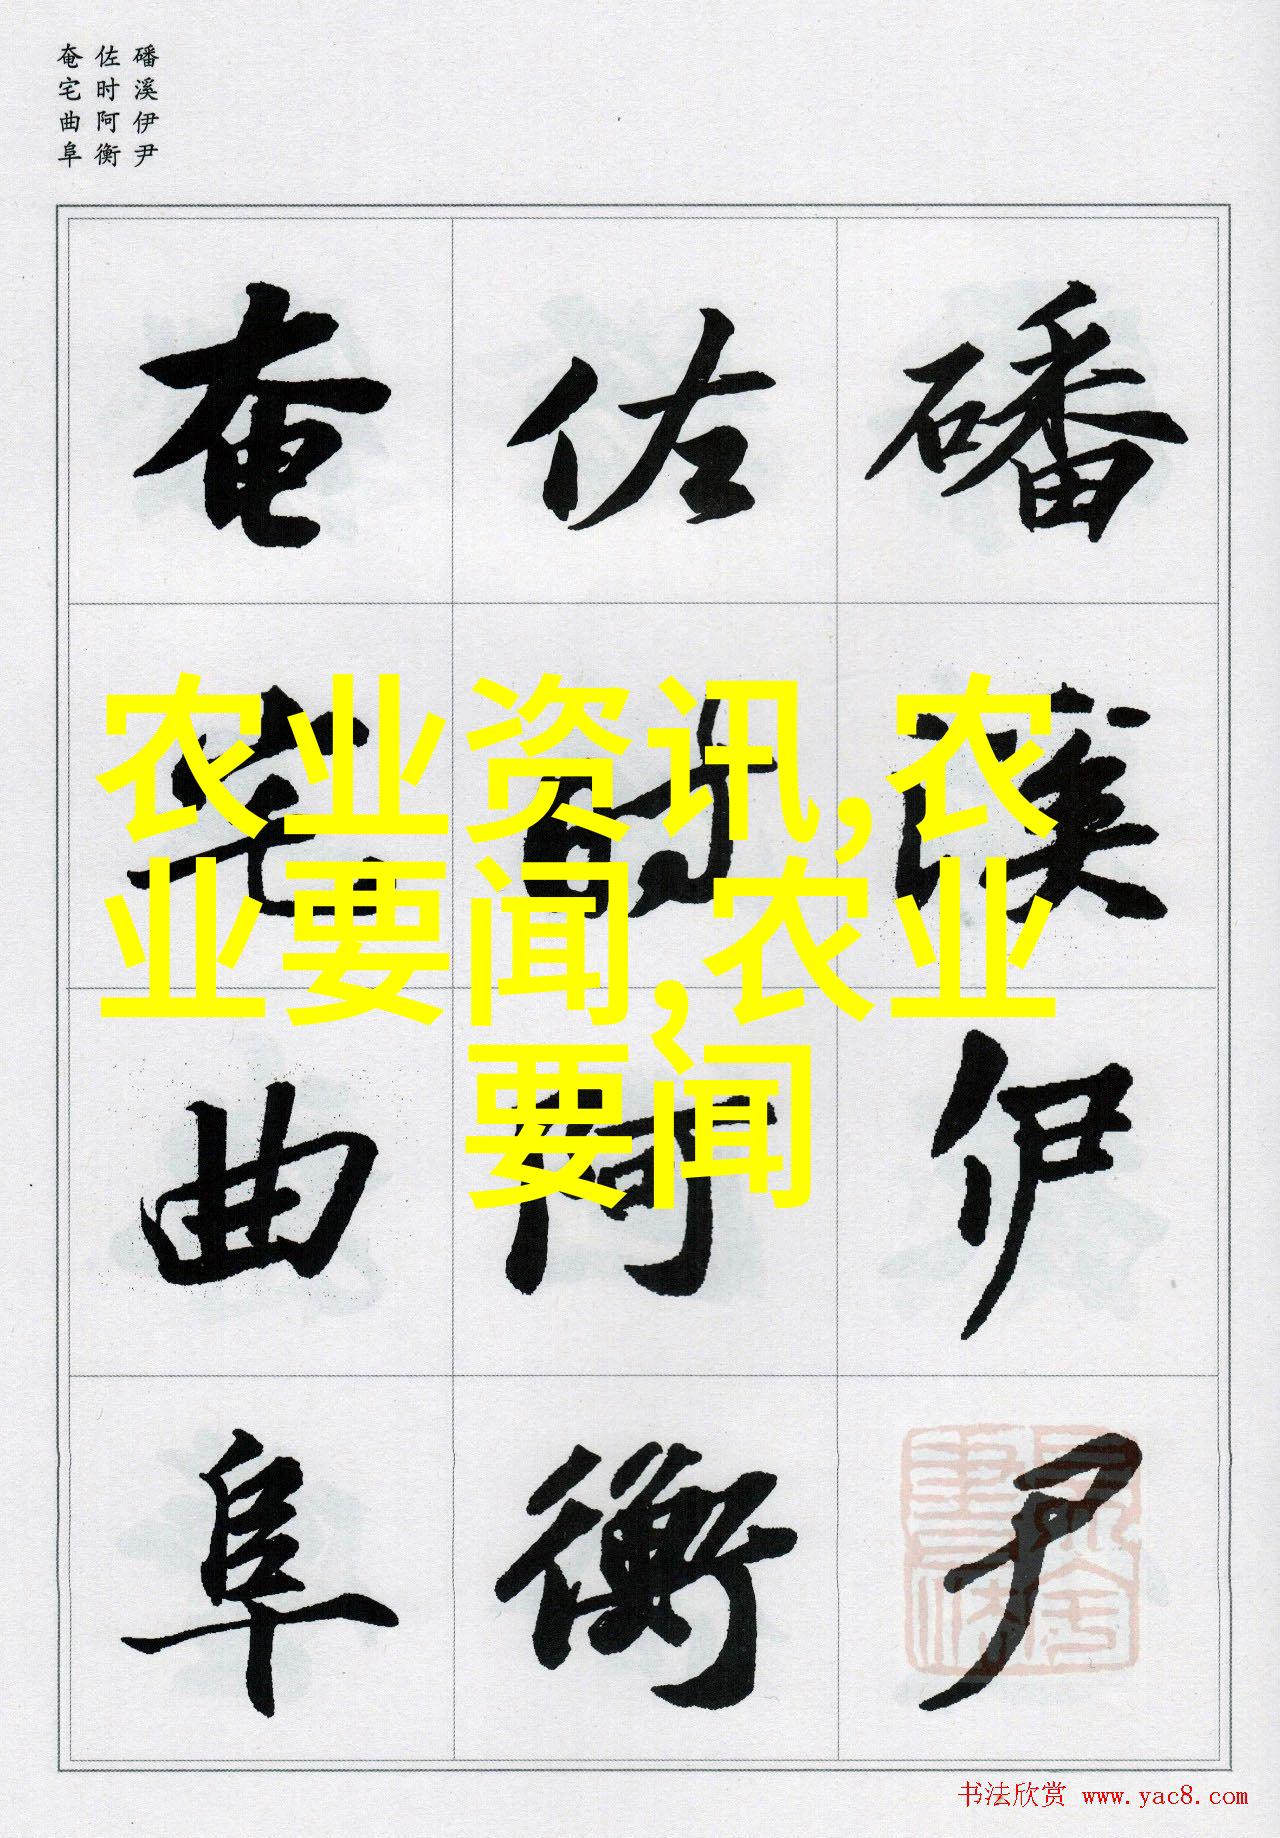 磻溪伊尹
佐时阿衡
奄宅曲阜
磻溪伊尹
佐时阿衡
奄宅曲阜
农业资讯,农
业要闻,农业
要闻
书法欣赏 www.yac8.com